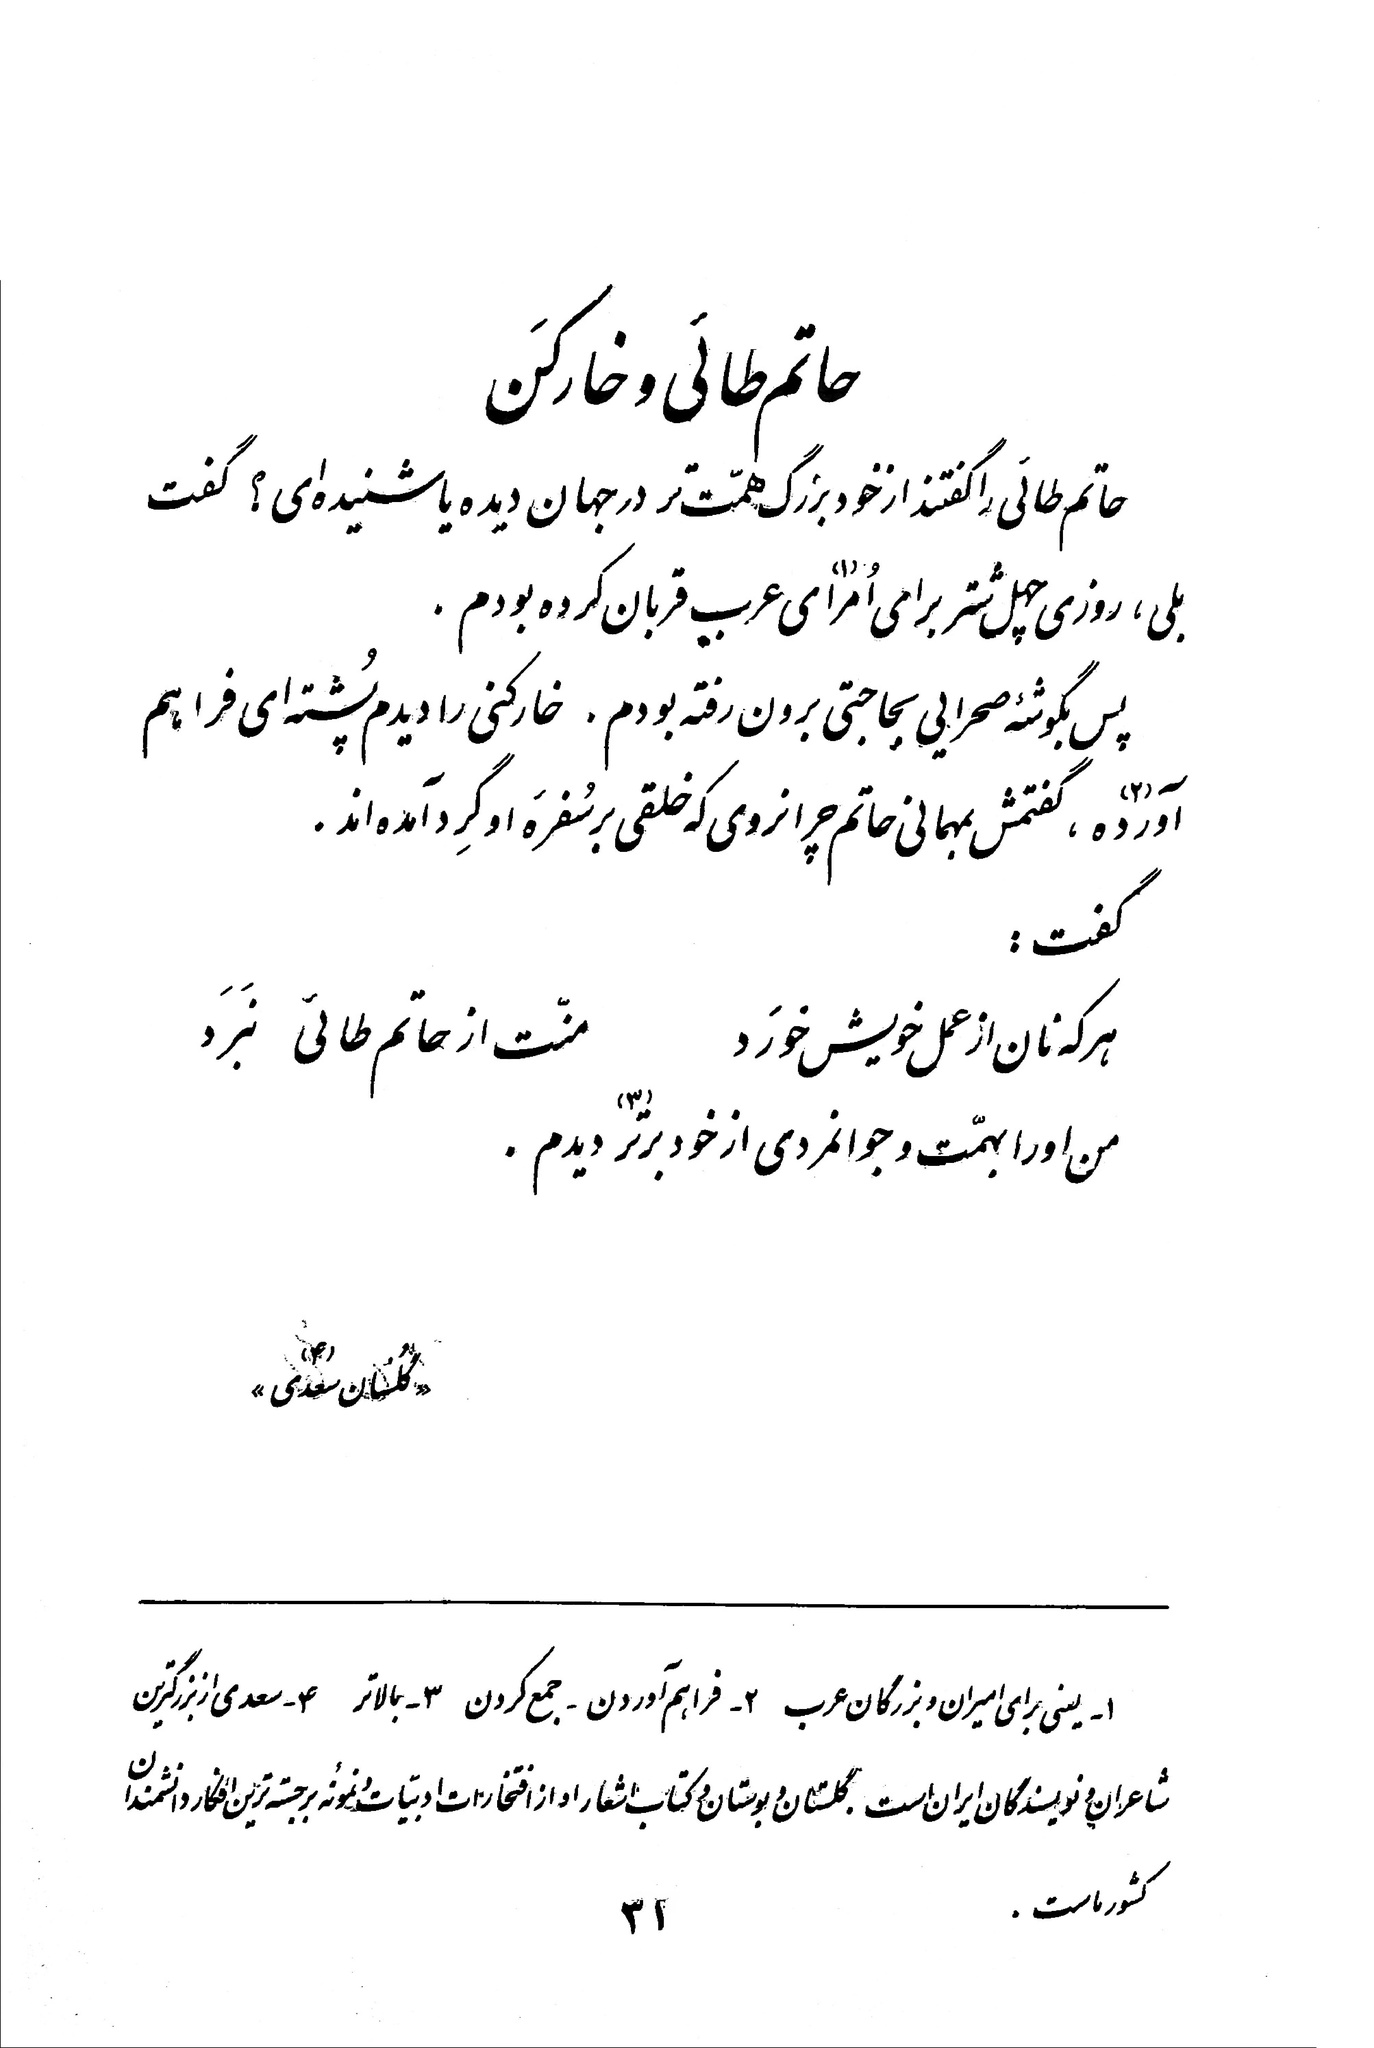 حاتم طائی و خارکَن
حاتم طائی را گفتند از خود بزرگ همّت تر در جهان دیده یا شنیده‌ای ؟ گفت
بلی ، روزی چهل شتر برای اُمرُای (۱) عرب قربان کرده بودم .
پس بگوشهٔ صحرایی بحاجتی برون رفته بودم . خارکنی را دیدم پُشته‌ای فراهم
آورده (۲) ، گفتمش بمهمانی حاتم چرا نروی که خلقی بر سُفرهَ او گِرد آمده‌اند .
گفت :
هر که نان از عمل خویش خورَد منّت از حاتم طائی نَبَرَد
من او را بهمّت و جوانمردی از خود برتر (۳) دیدم .
«گُلستان سعدی (۴)»
۱ـ یعنی برای امیران و بزرگان عرب ۲ـ فراهم آوردن ـ جمع کردن ۳ـ بالاتر ۴ـ سعدی از بزرگترین
شاعران و نویسندگان ایران است . گلستان و بوستان و کتاب اشعار او از افتخارات ادبیّات و نمونهٔ برجسته‌ترین افکار دانشمندان
کشور ماست .
۳۲